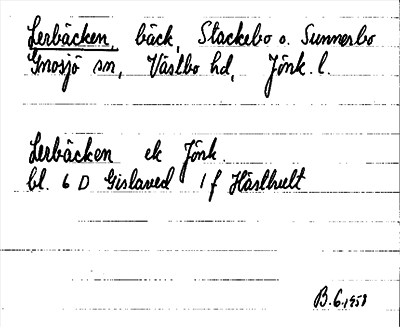 Lerbäcken, bäck, Stackebo o. Sunnerbo
Gnosjö sn, Västbo hd, Jönk. l.
Lerbäcken ek Jönk.
bl. 6 D Gislaved 1 f Hästhult
B.G. 1958